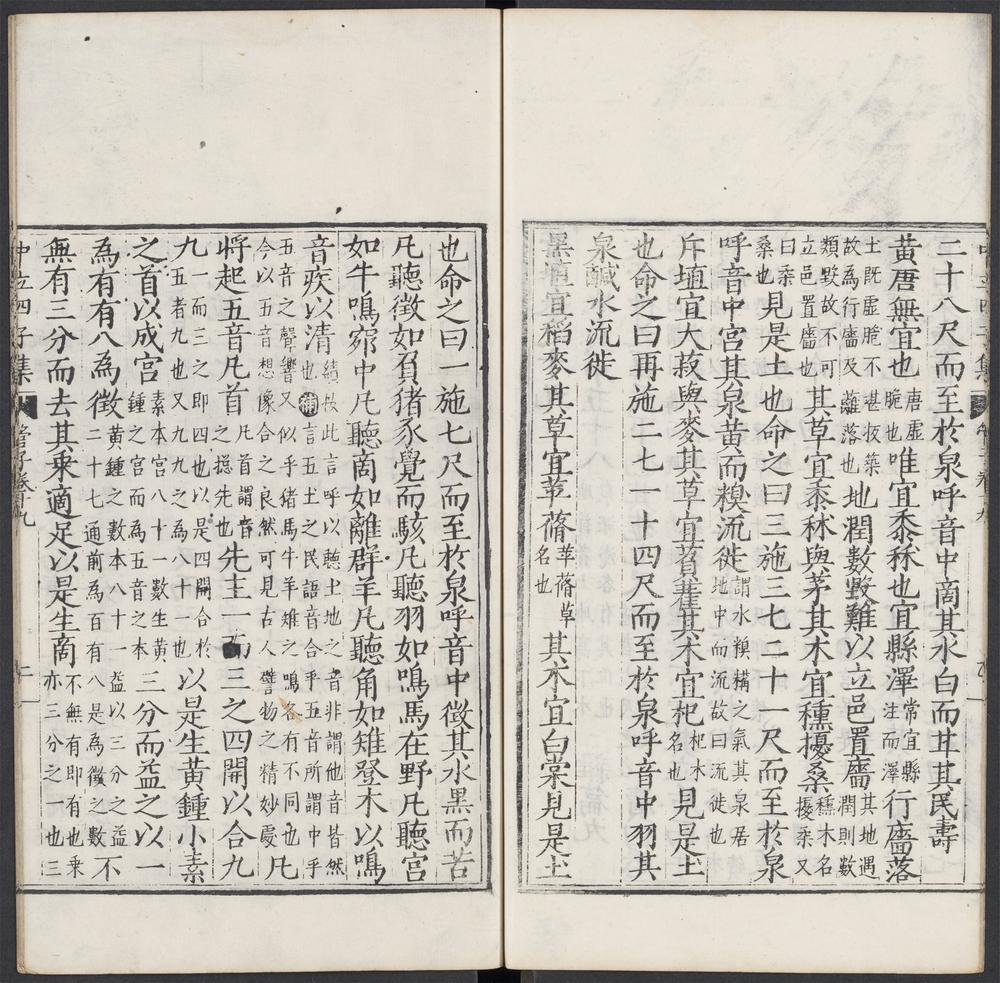 二十八尺而至於泉呼音中商其水白而甘其民壽
黃唐無宜也唐虛脆也唯宜黍秫也宜縣澤常宜縣注而澤行廧落
土既虛脆不堪板築故為行廧及蘺落也地潤數毀難以立邑置廧其地遇潤則數
類毀故不可立邑置廧也其草宜黍秫與茅其木宜櫄擾桑櫄木名擾桑又
曰桑桑也見是土也命之曰三施三七二十一尺而至於泉
呼音中宮其泉黃而糗流徙謂水糗糒之氣其泉居地中而流故曰流徙也
斥埴宜大菽與麥其草宜萯雚其木宜杞杞木名也見是土
也命之曰再施二七一十四尺而至於泉呼音中羽其
泉鹹水流徙
黑埴宜稻麥其草宜苹蓨苹蓨草名也其木宜白棠見是土
也命之曰一施七尺而至於泉呼音中徵其水黑而苦
凡聽徵如負猪豕覺而駭凡聽羽如鳴馬在野凡聽宮
如牛鳴窌中凡聽商如離群羊凡聽角如雉登木以鳴
音疾以清也績按此言呼以聽土地之音非謂他音皆然補言五土之民語音合乎五音所謂中乎
五音之聲響又似乎猪馬牛羊雉之鳴各有不同也今以五音想像合之良然可見古人譬物之精妙處凡
將起五音凡首凡謂音之總先也先主一而三之四開以合九
九一而三之即四也以是四開合於五者九也又九九之為八十一也以是生黃鍾小素
之首以成宮素本宮八十一數生黃鍾之宮而為五音之本三分而益之以一
為有有八為徵黃鍾之數本八十一益以三分之益二十七通前為百有八是為徵之數不
無有三分而去其乘適足以是生商不無有即有也乘亦三分之一也三
中立四子集
管子卷十九